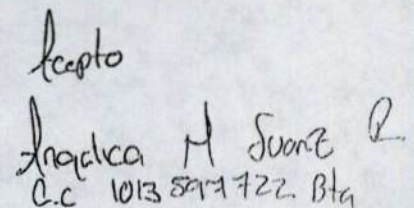 Acepto
Angelica M Suarez R
C.C 1013 597 722 Bta